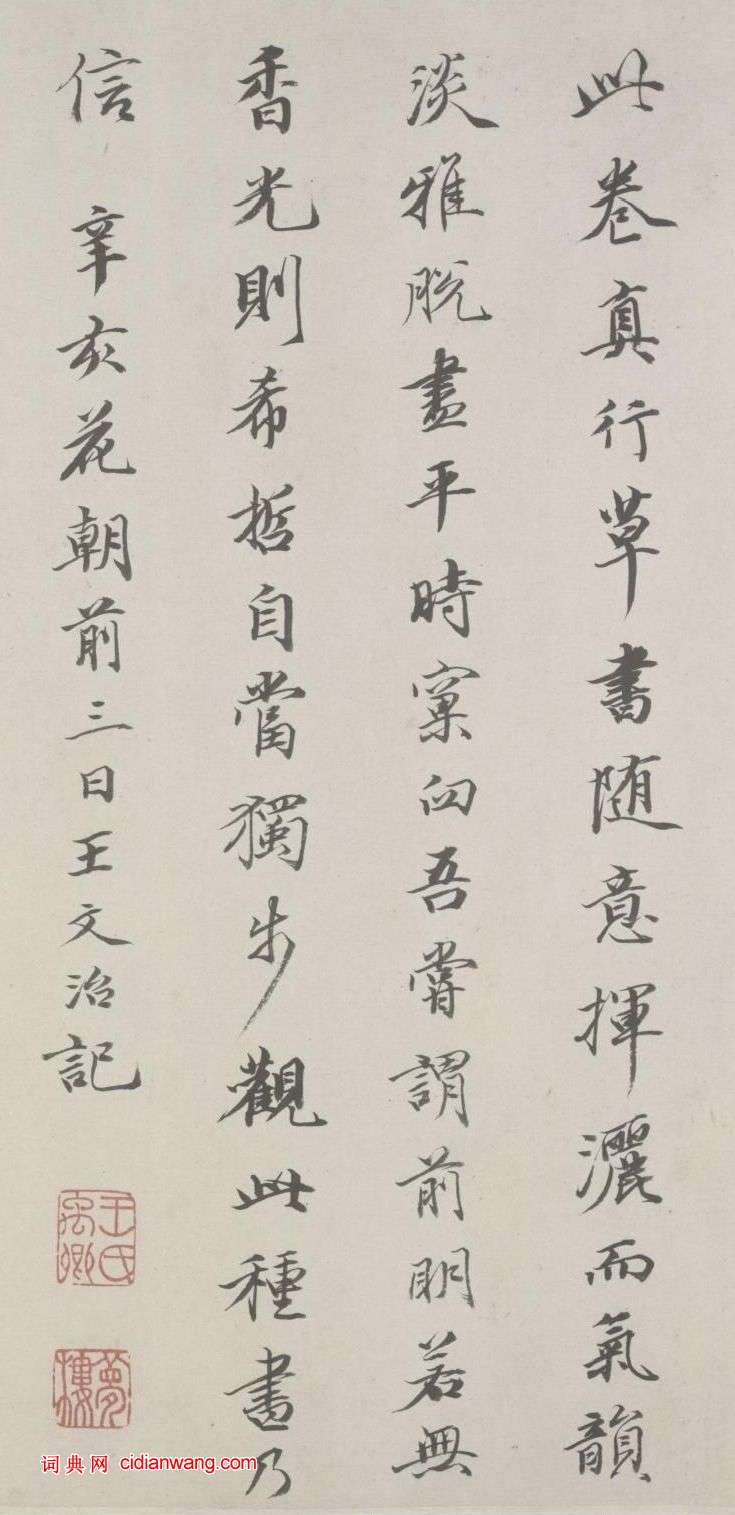 此卷真行草書随意揮灑而氣韻
淡雅脫盡平時窠臼吾嘗謂前明若無
香光則希哲自當獨步觀此種書乃
信 辛亥花朝前三日王文治記
王氏禹卿
夢樓
词典网 cidianwang.com